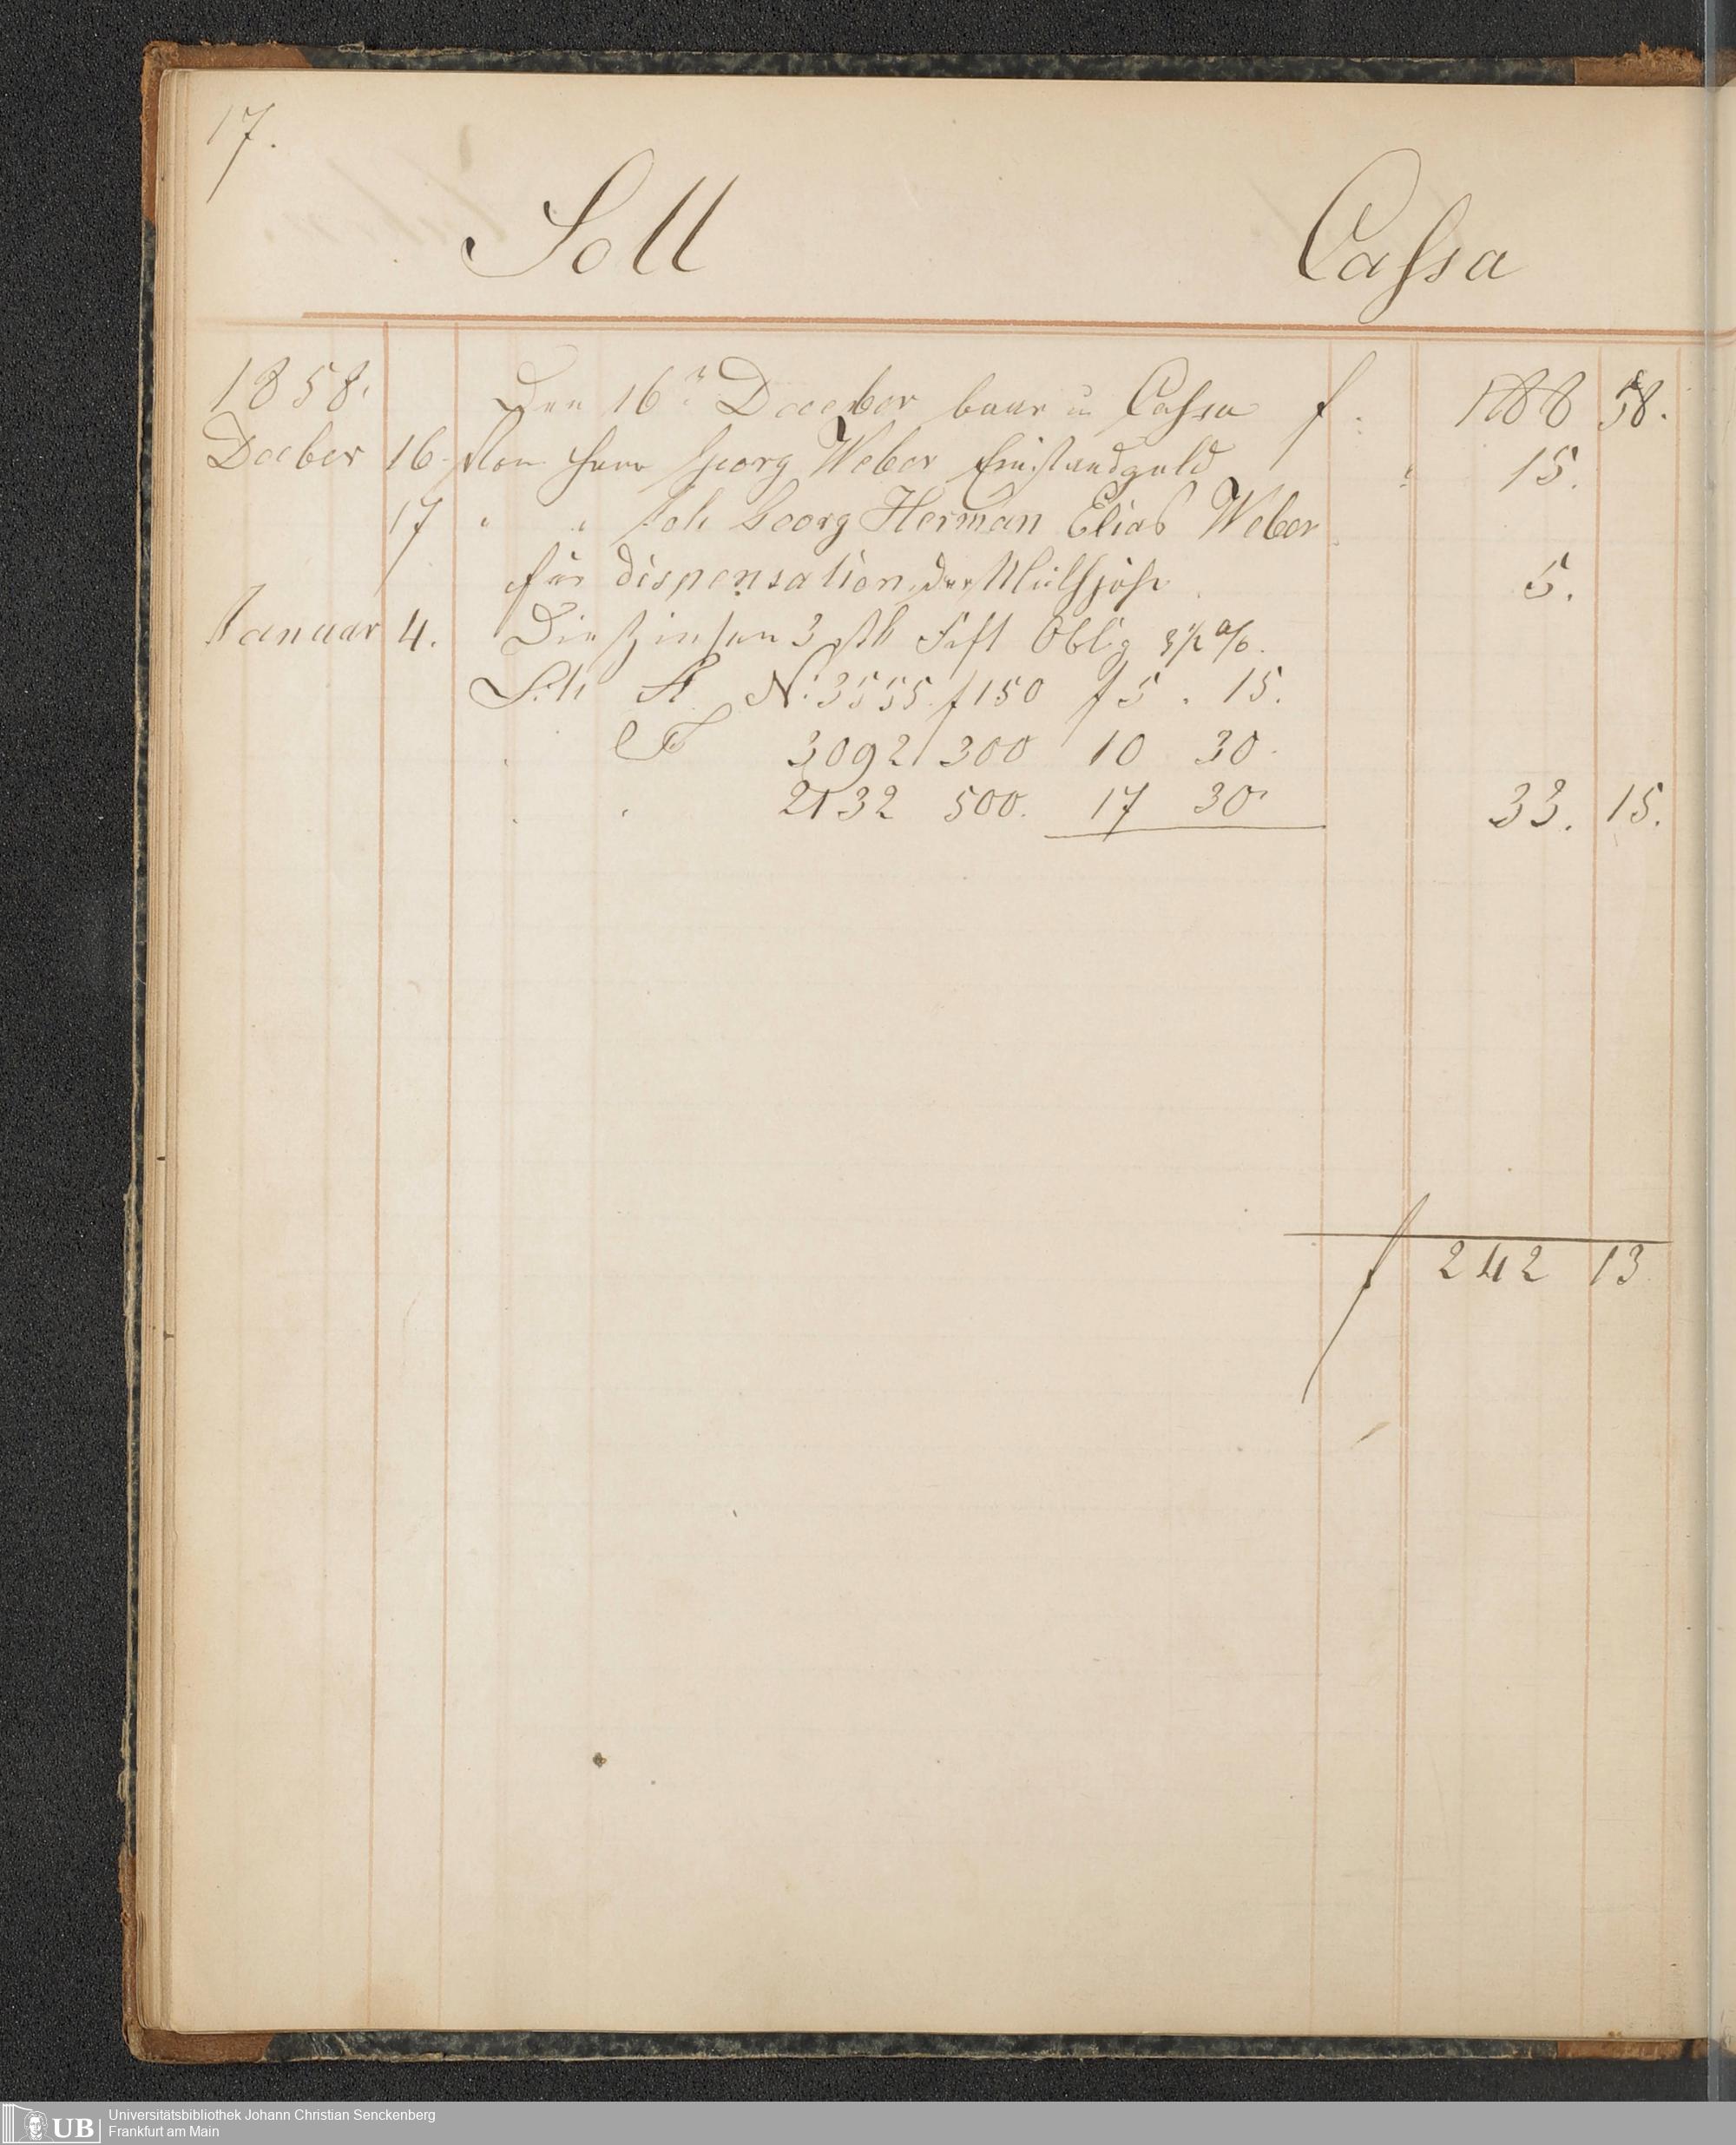 17.
Soll Cassa
1858. Den 16r Deceber baar in Cassa f 188 58.
Deceber 16 Von Herr Georg Weber Einstandgeld " 15.
17 " " Joh Georg Herman Elias Weber
für dispensation der 5.
Januar 4. Die Zinsen 3 Stk Fkft Oblig 3½ %.
Lit A No. 3555. f 150 f 5. 15.
F 3092 300 10 30
2132 500. 17 30 33. 15.
f 242 13
UB Universitätsbibliothek Johann Christian Senckenberg
Frankfurt am Main